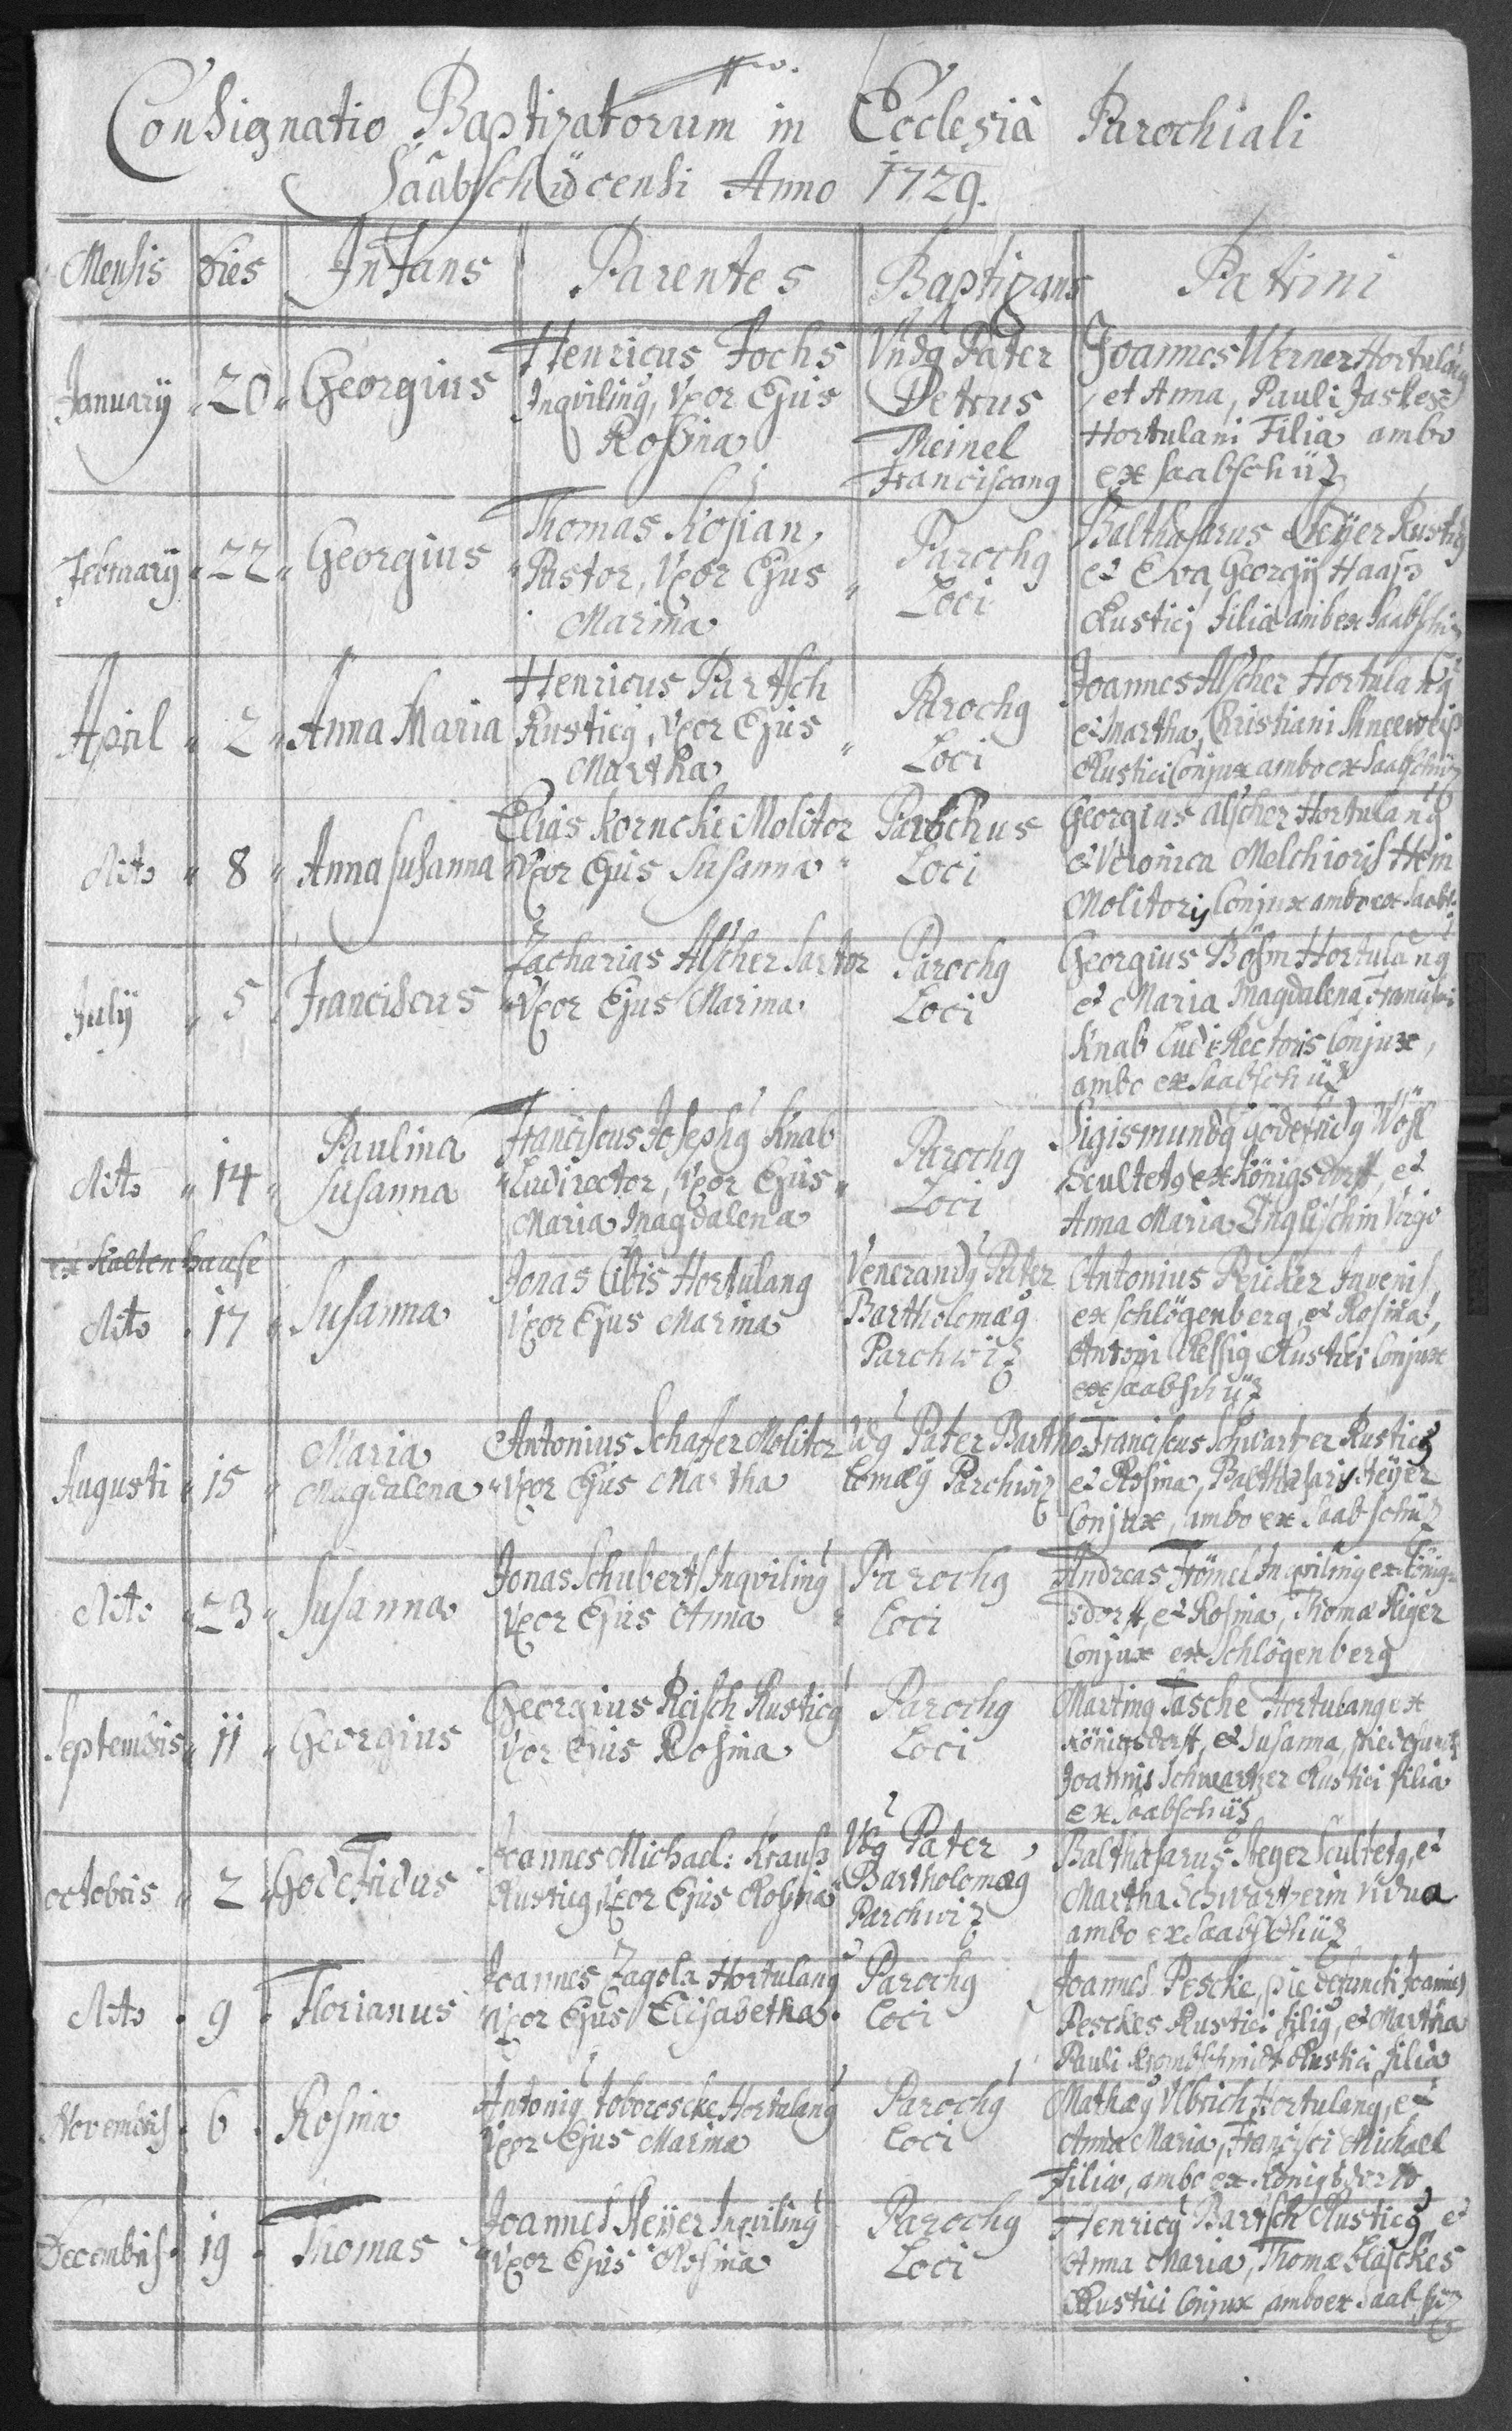 Consignatio Baptizatorum in Ecclesiâ Parochiali
Saabschücensi Anno 1729.
Mensis Dies Infans Parentes Baptizans Patrini
January 20 Georgius
Henricus Fochs
Inqviling, Uxor Ejus
Rosina
Vndg Pater
Petrus
Theinel
Franciscang
Joannes Werner Hortulang
et Anna, Pauli Jaskes
Hortulani Filia ambo
ex Saabschüz
February 22 Georgius
Thomas Kosian,
Pastor, Uxor Ejus
Marina
Parochg
Loci
Balthasarus Steyer Rusticg
et Eva Georgij Haass
Rustici filia amb ex Saabschüz
April 2 Anna Maria
Henricus Partsch
Rusticg, Uxor Ejus
Martha
Parochg
Loci
Joannes Alscher Hortulang
et Martha, Christiani Schneeweiss
Rustici Conjux ambo ex Saabschüz
dito 8 Anna Susanna
Elias Korncke Molitor
Uxor Ejus Susanna
Parochus
Loci
Georgius Alscher Hortulang
et Veronica Melchioris Hein
Molitoris Conjux ambo ex Saabs.
July 5 Franciscus
Zacharias Alscher Sartor
Uxor Ejus Marina
Parochg
Loci
Georgius Böhm Hortulang
et Maria Magdalena Francisci
Knab Ludi Rectoris Conjux,
ambo ex Saabschüz
dito 14 Paulina
Susanna
Franciscus Josephg Knab
Ludirector, Uxor Ejus
Maria Magdalena
Parochg
Loci
Sigismundg Godefridg
Scultetg ex Königsdorff, et
Anna Maria Englischin Virgo
ex Kaltenhause
dito 17 Susanna
Jonas Hortulang
Uxor Ejus Marina
Venerandg Pater
Bartholomæg
Parchwiz
Antonius Reicker Juvenis,
ex Schlögenberg, et Rosina,
Antoni Rustici Conjux
ex Saabschüz
Augusti 15 Maria
Magdalena
Antonius Schaffer Molitor
Uxor Ejus Martha
Vdg Pater Bartho
lomæg Parchwiz
Franciscus Schwartzer Rusticg
et Rosina, Balthasaris Steyer
Conjux, ambo ex Saabschüz
dito 23 Susanna
Jonas Schubert Inqviling
Uxor Ejus Anna
Parochg
Loci
Andreas Frömel Inqviling ex König-
sdorff, et Rosina, Thomæ
Conjux ex Schlögenberg
Septembris 11 Georgius
Georgius Reisch Rusticg
Uxor Ejus Rosina
Parochg
Loci
Marting Tasche Hortulang ex
Königsdorff, et Susanna, pie defuncti
Joannis Schwartzer Rustici filia
ex Saabschüz
octobris 2 Godefridus
Joannes Michael: Krauss
Rusticg, Uxor Ejus Rosina
Vdg Pater
Bartholomæg
Parchwiz
Balthasarus Steyer Scultetg, et
Martha Schwartzerin Vidua
ambo ex Saabschüz
dito 9 Florianus
Joannes Zagola Hortulang
Uxor Ejus Elisabetha.
Parochg
Loci
Joannes Pescke, pie defuncti Joannis
Peschkes Rustici filig, et Martha
Pauli Rustici filia
Novembris 6 Rosina
Antonig Hortulang
Uxor Ejus Marina
Parochg
Loci
Mathæg Ulbrich Hortulang, et
Anna Maria, Francisci Michael
Filia, ambo ex Königsdorff
Decembris 19 Thomas
Joannes Steyer Inqviling
Uxor Ejus Rosina
Parochg
Loci
Henricg Bartsch Rusticg et
Anna Maria, Thomæ
Rustici Conjux ambo ex Saabschüz